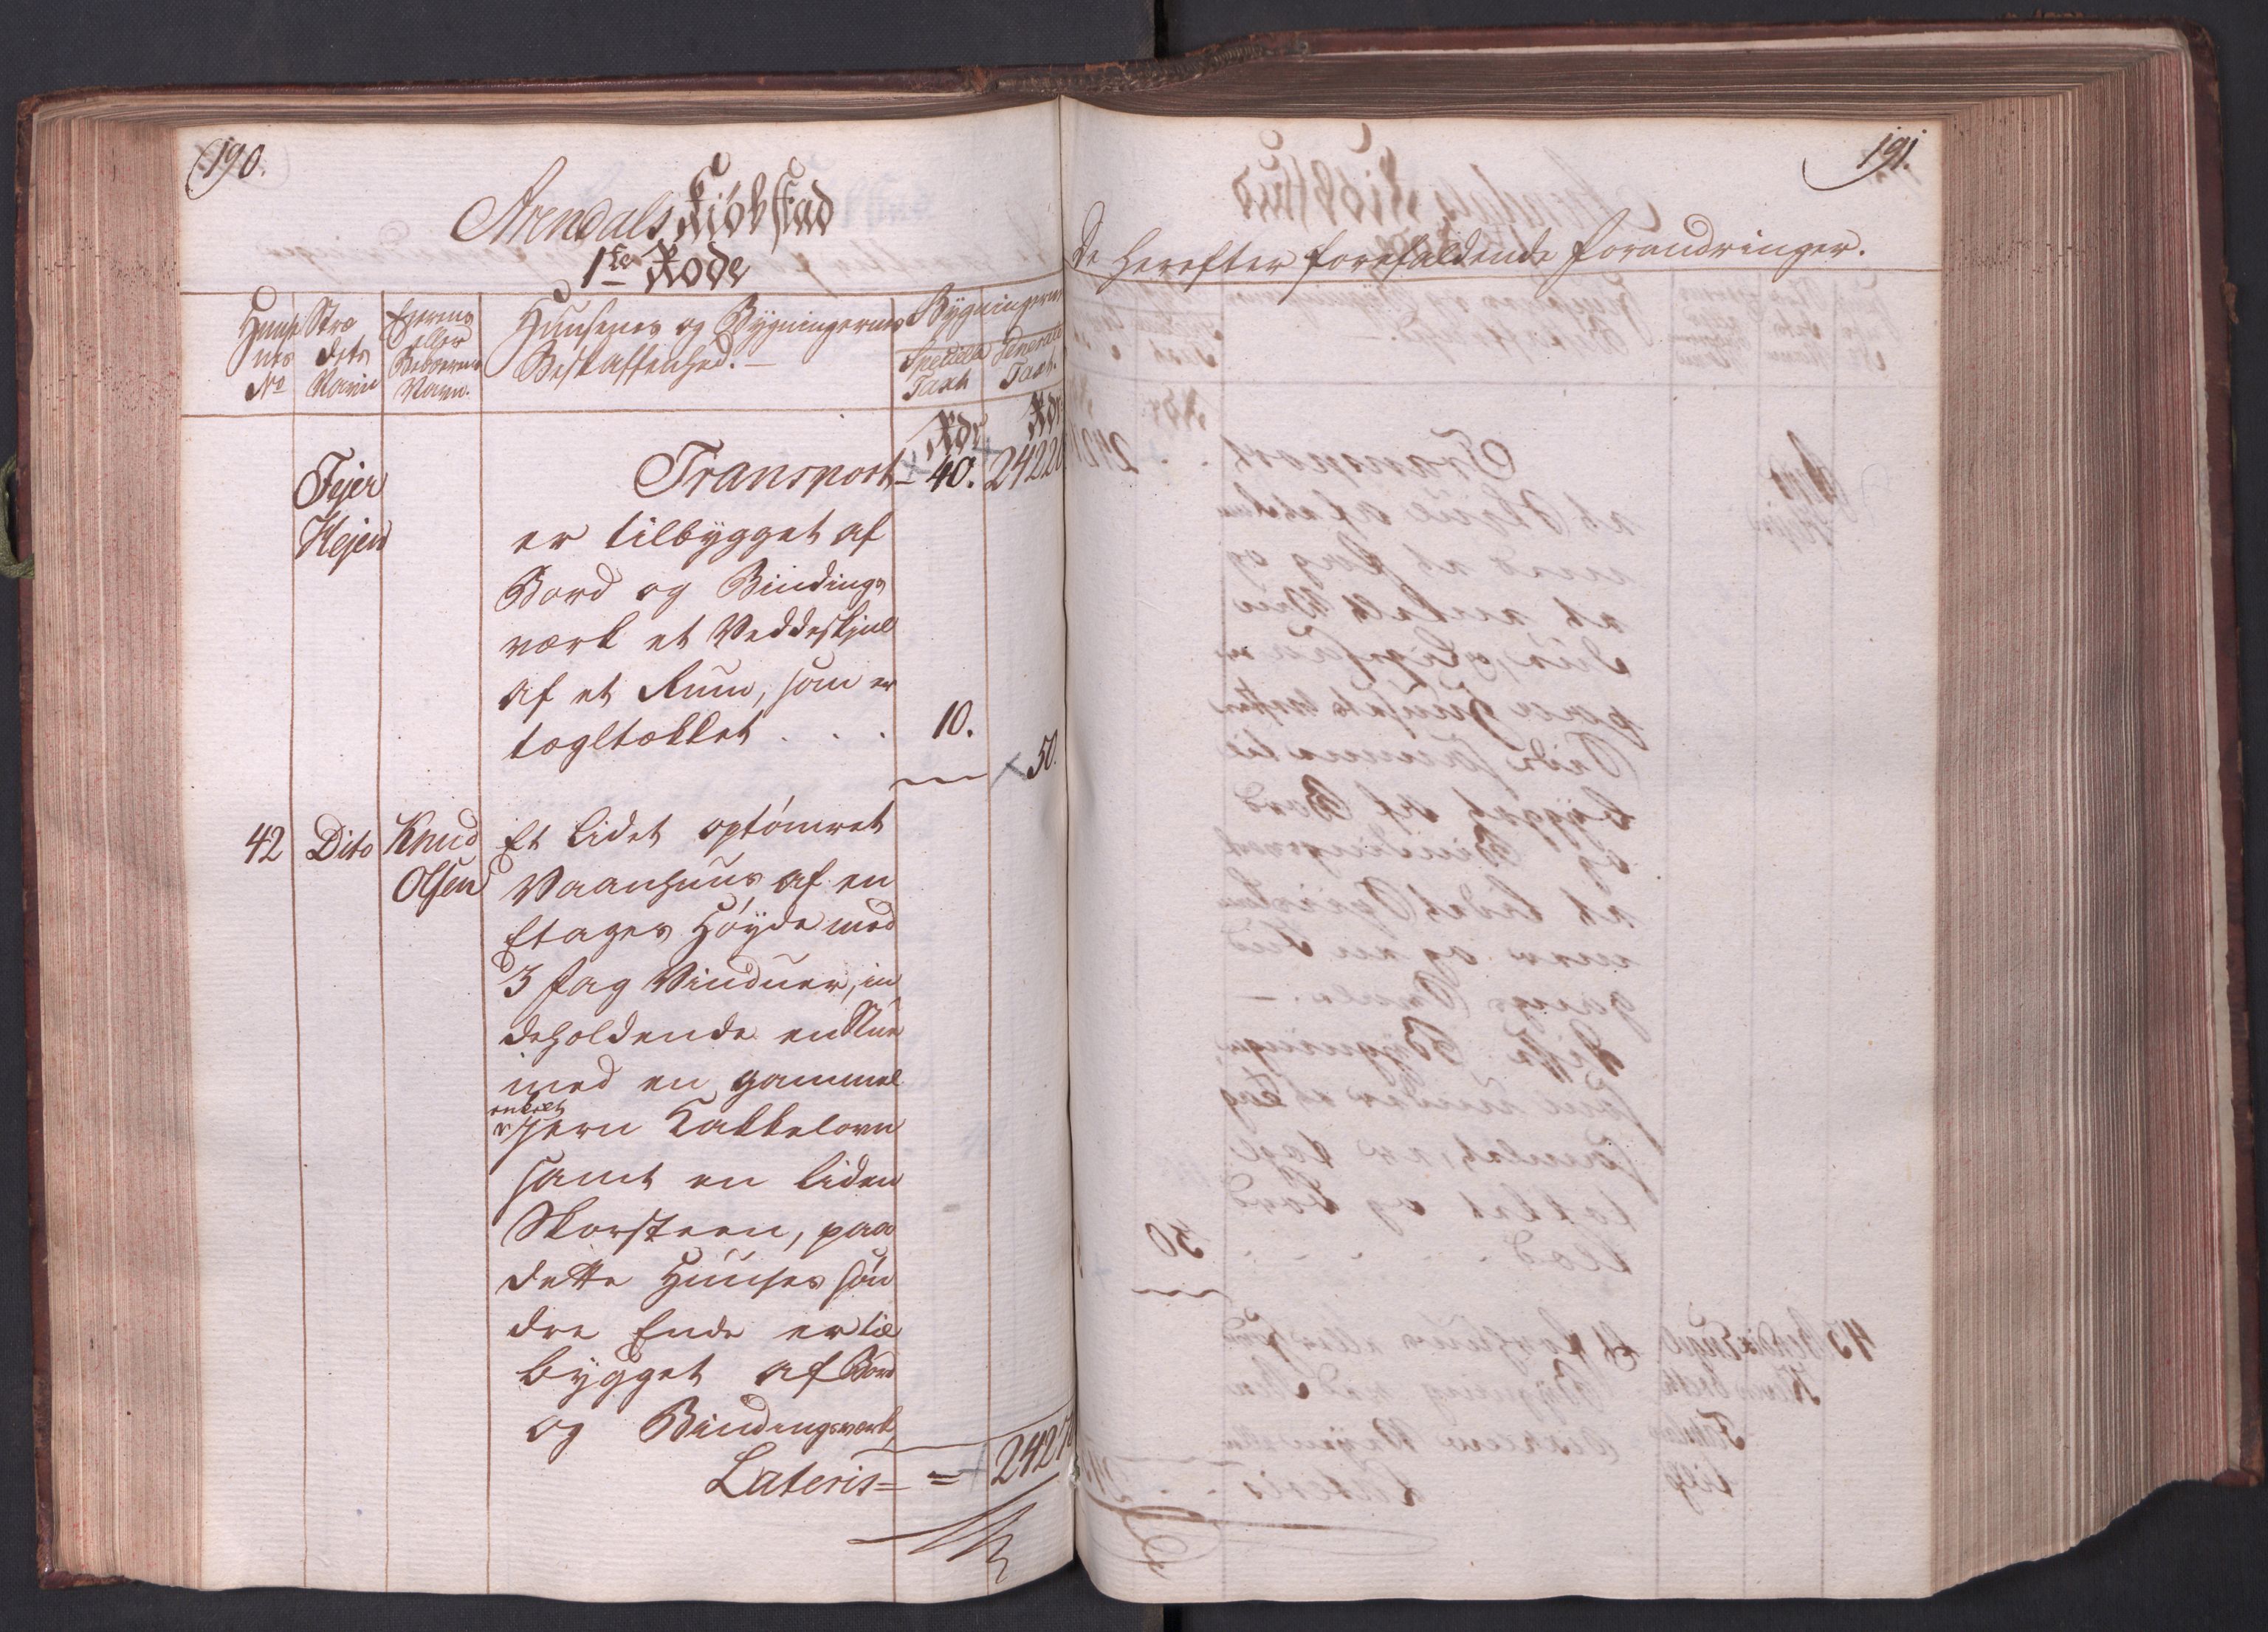 190.
Arendals Kiøbstad
1te Rode
Huuse
nes
No
Stræ
dets
Navn
Eyerens
eller
Beboerens
Navn.
Huusenes og Bygningernes
Beskaffenhed. —
Bygningernes
Specielle
Taxt
Generale
Taxt.
Rdr
Rdr
Fejer
Hejen
Transport = 40. 2422
er tilbygget af
Bord og Bindings
værk et Veddeskjul
af et Rum, som er
tægltækket . . . 10.
50.
42 Dito Knud
Olsen
Et lidet optømret
Vaanhuus af en
Etages Høyde med
3 fag Vinduer, in
deholdende en Stue
med en gammel
enkelt
Jern Kakkelovn
samt en liden
Skorsteen, paa
dette Huuses søn
dre Ende er til
bygget af Bord
og Bindingsværk,
Lateris = = 2427
191.
De herefter forefaldende forandringer.